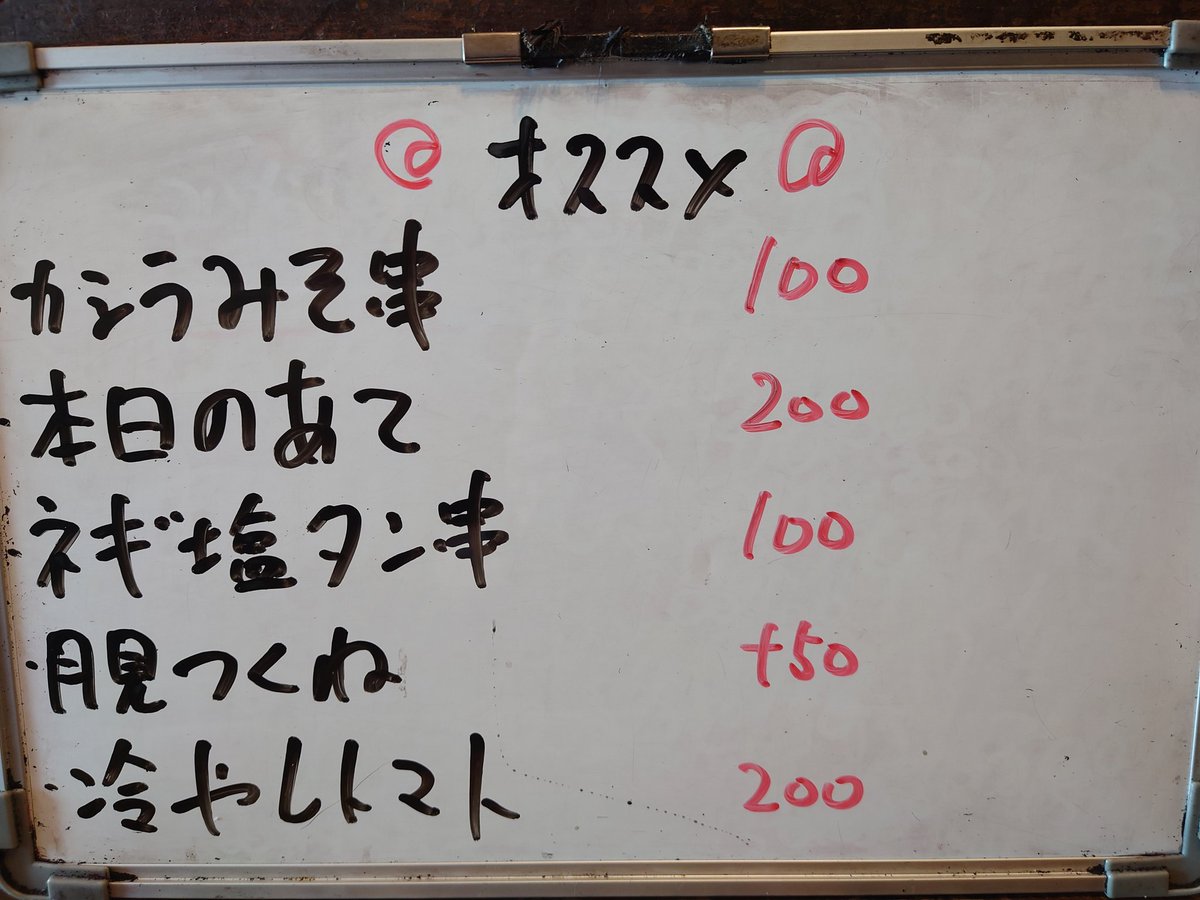 オススメ
カシラみそ串 100
本日のあて 200
ネギ塩タン串 100
月見つくね +50
冷やしトマト 200